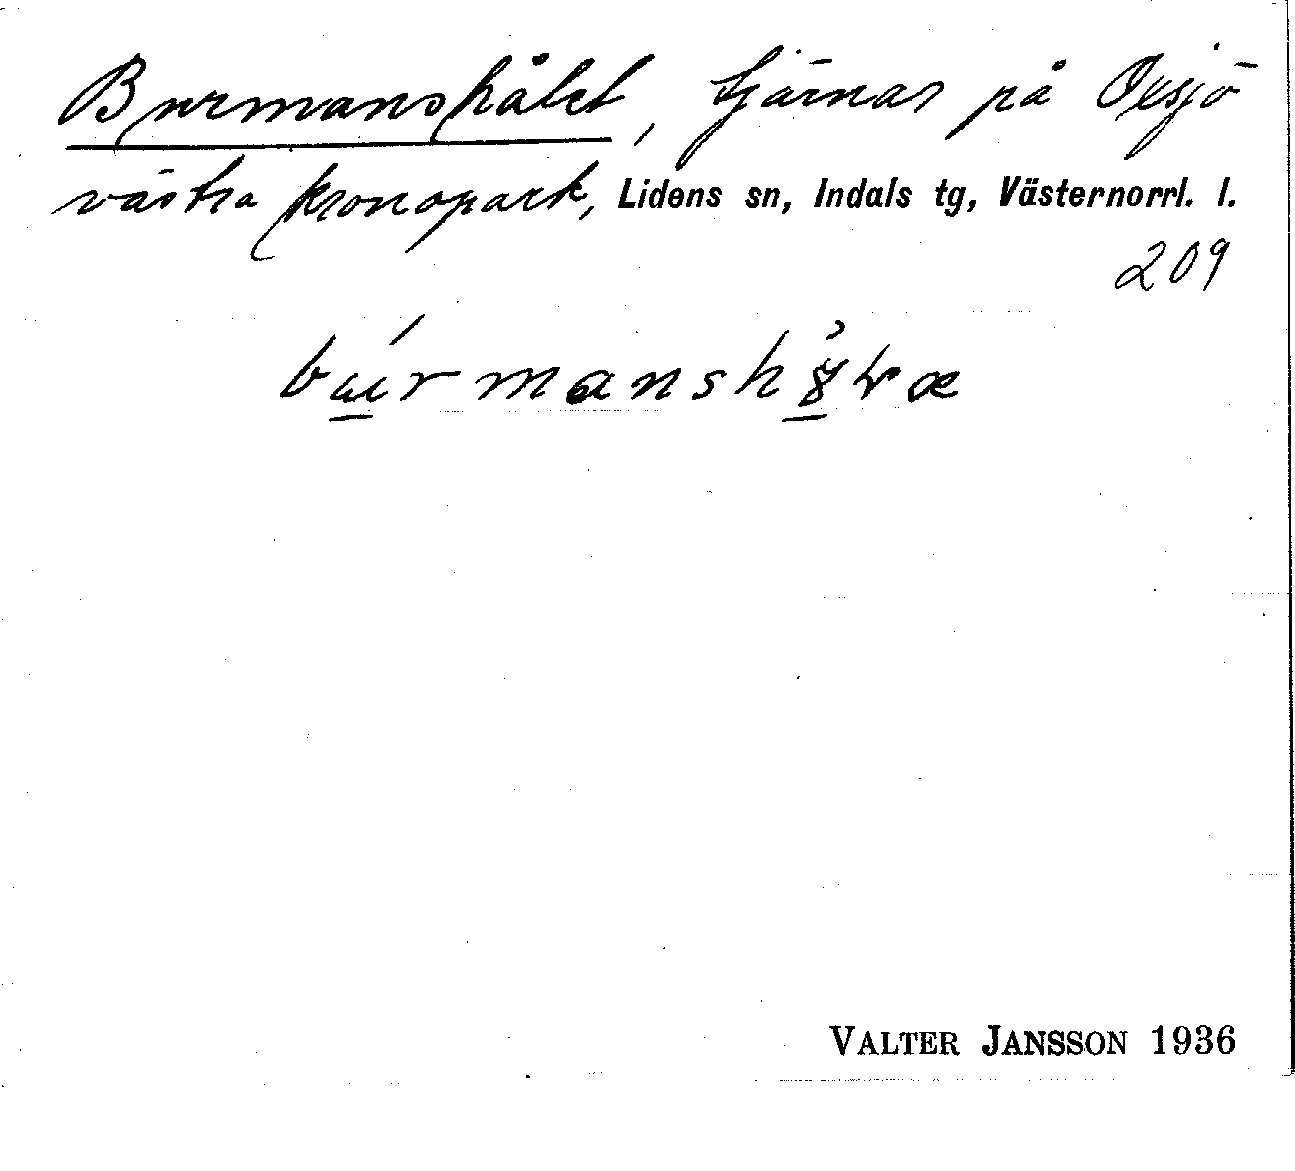 Burmanshålet, tjärnar på Oxsjö
västra kronopark, Lidens sn, Indals tg, Västernorrl. l.
209
VALTER JANSSON 1936